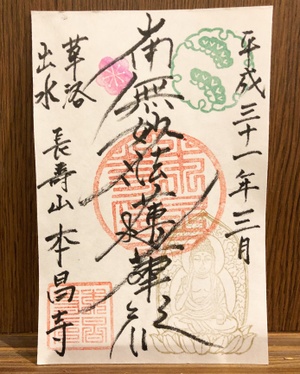 平成三十一年三月
南無妙法蓮華経
京洛
出水
長寿山 本昌寺